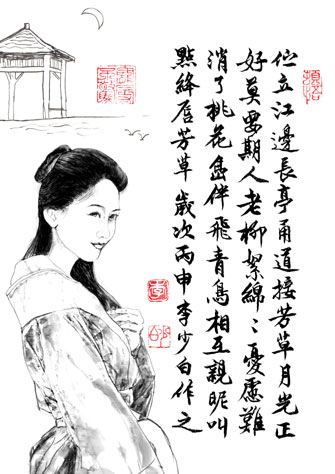 伫立江邊長亭甬道接芳草月光正
好莫要期人老柳絮綿〻憂慮難
消了桃花伴飛青鳥相互親昵叫
點絳唇芳草歲次丙申李少白作之
李